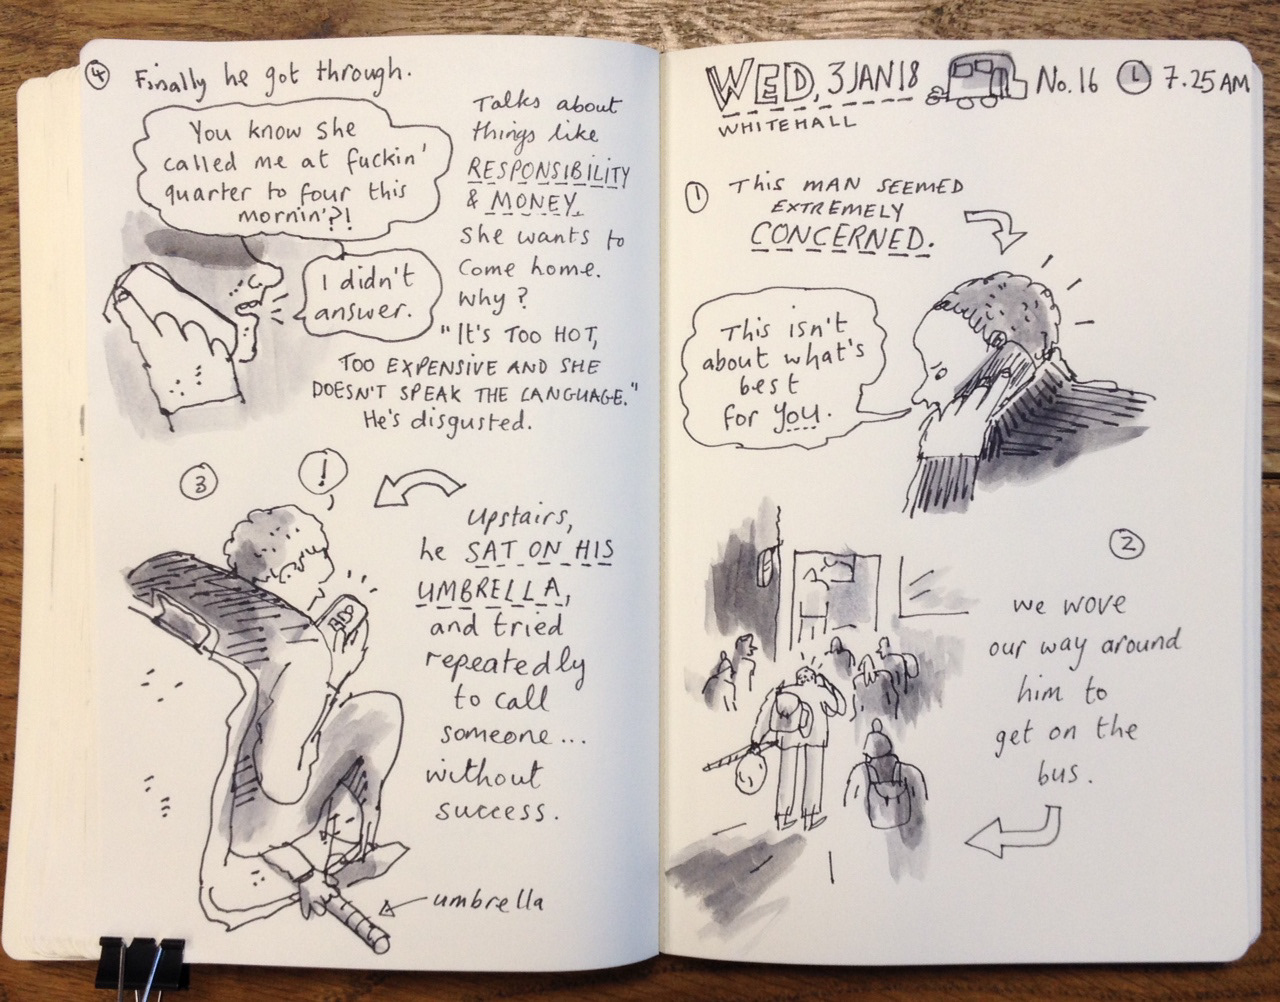 4
Finally he got through.
You know she
called me at fuckin'
quarter to four this
mornin'?!
I didn't
answer.
Talks about
things like
RESPONSIBILITY
& MONEY.
She wants to
come home.
Why?
"It's TOO HOT,
TOO EXPENSIVE AND SHE
DOESN'T SPEAK THE LANGUAGE."
He's disgusted.
3
!
Upstairs,
he SAT ON HIS
UMBRELLA,
and tried
repeatedly
to call
someone...
without
success.
umbrella
WED, 3 JAN 18
No. 16
7.25 AM
WHITEHALL
1
THIS MAN SEEMED
EXTREMELY
CONCERNED.
This isn't
about what's
best
for you.
2
we wove
our way around
him to
get on the
bus.